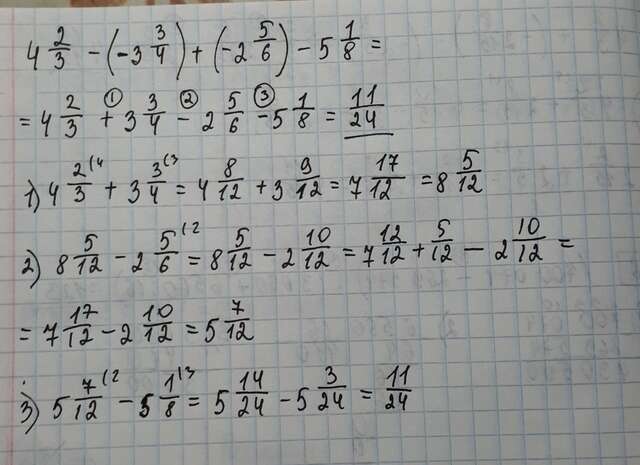 4 2/3 − (−3 3/4) + (−2 5/6) − 5 1/8 =
= 4 2/3 +① 3 3/4 −② 2 5/6 −③ 5 1/8 = 11/24
1) 4 2/3 (4 + 3 3/4 (3 = 4 8/12 + 3 9/12 = 7 17/12 = 8 5/12
2) 8 5/12 − 2 5/6 (2 = 8 5/12 − 2 10/12 = 7 12/12 + 5/12 − 2 10/12 =
= 7 17/12 − 2 10/12 = 5 7/12
3) 5 7/12 (2 − 5 1/8 (3 = 5 14/24 − 5 3/24 = 11/24